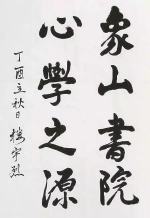 象山書院
心學之源
丁酉立秋日 樓宇烈